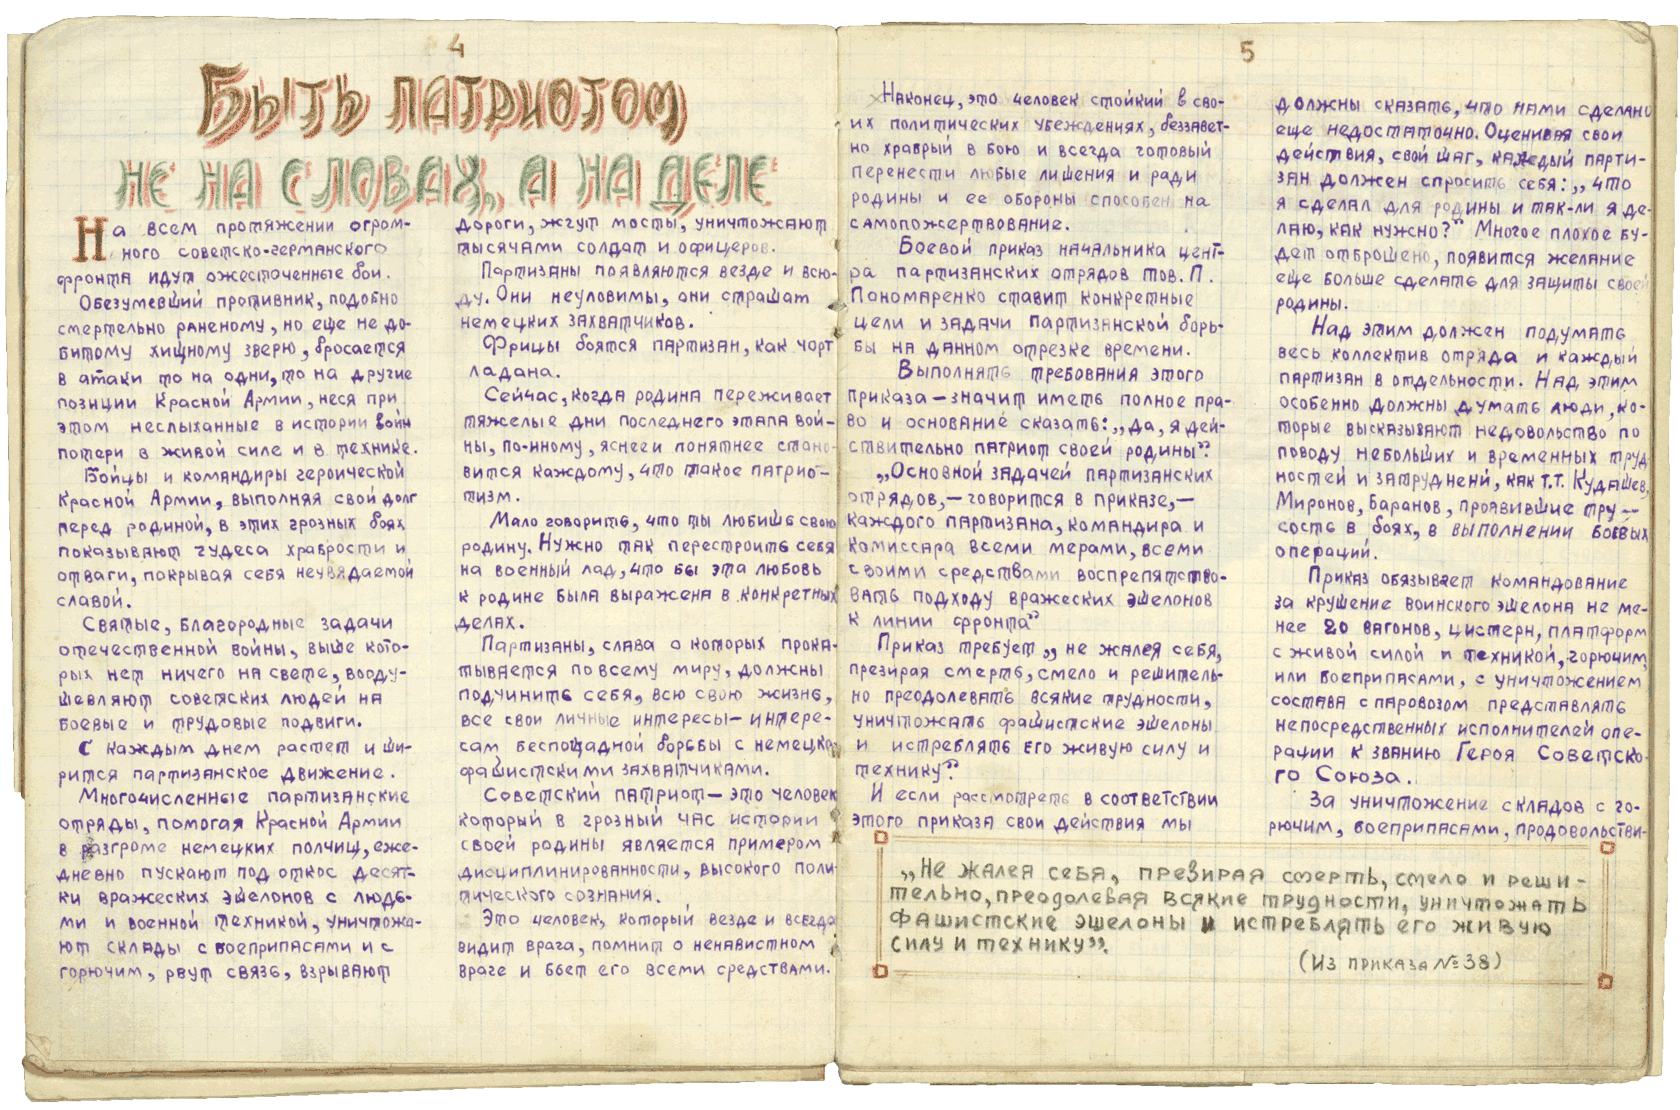 4
Быть патриотом
не на словах, а на деле
На всем протяжении огром-
ного советско-германского
фронта идут ожесточенные бои.
Обезумевший противник, подобно
смертельно раненому, но еще не до-
битому хищному зверю, бросается
в атаки то на одни, то на другие
позиции Красной Армии, неся при
этом неслыханные в истории войн
потери в живой силе и в технике.
Бойцы и командиры героической
Красной Армии, выполняя свой долг
перед родиной, в этих грозных боях
показывают чудеса храбрости и
отваги, покрывая себя неувядаемой
славой.
Святые, благородные задачи
отечественной войны, выше кото-
рых нет ничего на свете, вооду-
шевляют советских людей на
боевые и трудовые подвиги.
С каждым днем растет и ши-
рится партизанское движение.
Многочисленные партизанские
отряды, помогая Красной Армии
в разгроме немецких полчищ, еже-
дневно пускают под откос десят-
ки вражеских эшелонов с людь-
ми и военной техникой, уничтожа-
ют склады с боеприпасами и с
горючим, рвут связь, взрывают
дороги, жгут мосты, уничтожают
тысячами солдат и офицеров.
Партизаны появляются везде и всю-
ду. Они неуловимы, они страшат
немецких захватчиков.
Фрицы боятся партизан, как чорт
ладана.
Сейчас, когда родина переживает
тяжелые дни последнего этапа вой-
ны, по-иному, яснее и понятнее стано-
вится каждому, что такое патрио-
тизм.
Мало говорить, что ты любишь свою
родину. Нужно так перестроить себя
на военный лад, что бы эта любовь
к родине была выражена в конкретных
делах.
Партизаны, слава о которых прока-
тывается по всему миру, должны
подчинить себя, всю свою жизнь,
все свои личные интересы – интере-
сам беспощадной борьбы с немецко-
фашистскими захватчиками.
Советский патриот – это человек
который в грозный час истории
своей родины является примером
дисциплинированности, высокого поли-
тического сознания.
Это человек, который везде и всегда
видит врага, помнит о ненавистном
враге и бьет его всеми средствами.
5
Наконец, это человек стойкий в сво-
их политических убеждениях, беззавет-
но храбрый в бою и всегда готовый
перенести любые лишения и ради
родины и ее обороны способен на
самопожертвование.
Боевой приказ начальника цент-
ра партизанских отрядов тов. П.
Пономаренко ставит конкретные
цели и задачи партизанской борь-
бы на данном отрезке времени.
Выполнять требования этого
приказа – значит иметь полное пра-
во и основание сказать: „да, я дей-
ствительно патриот своей родины".
„Основной задачей партизанских
отрядов, – говорится в приказе, –
каждого партизана, командира и
комиссара всеми мерами, всеми
своими средствами воспрепятство-
вать подходу вражеских эшелонов
к линии фронта"
Приказ требует „не жалея себя,
презирая смерть, смело и решитель-
но преодолевать всякие трудности,
уничтожать фашистские эшелоны
и истреблять его живую силу и
технику".
И если рассмотреть в соответствии
этого приказа свои действия мы
должны сказать, что нами сделано
еще недостаточно. Оценивая свои
действия, свой шаг, каждый парти-
зан должен спросить себя: „что
я сделал для родины и так-ли я де-
лаю, как нужно?" Многое плохое бу-
дет отброшено, появится желание
еще больше сделать для защиты своей
родины.
Над этим должен подумать
весь коллектив отряда и каждый
партизан в отдельности. Над этим
особенно должны думать люди, ко-
торые высказывают недовольство по
поводу небольших и временных труд
ностей и затруднени, как т.т. Кудашев,
Миронов, Баранов, проявившие тру-
сость в боях, в выполнении боевых
операций.
Приказ обязывает командование
за крушение воинского эшелона не ме-
нее 20 вагонов, цистерн, платформ
с живой силой и техникой, горючим,
или боеприпасами, с уничтожением
состава с паровозом представлять
непосредственных исполнителей опе-
рации к званию Героя Советско-
го Союза.
За уничтожение складов с го-
рючим, боеприпасами, продовольстви-
„Не жалея себя, презирая смерть, смело и реши-
тельно, преодолевая всякие трудности, уничтожать
фашистские эшелоны и истреблять его живую
силу и технику".
(Из приказа № 38)